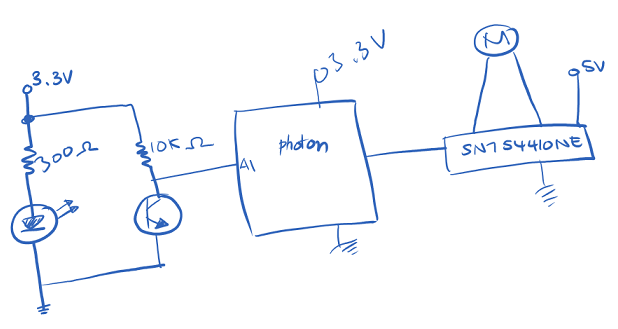 3.3V
300Ω
10KΩ
A1
photon
3.3V
M
5V
SN754410NE